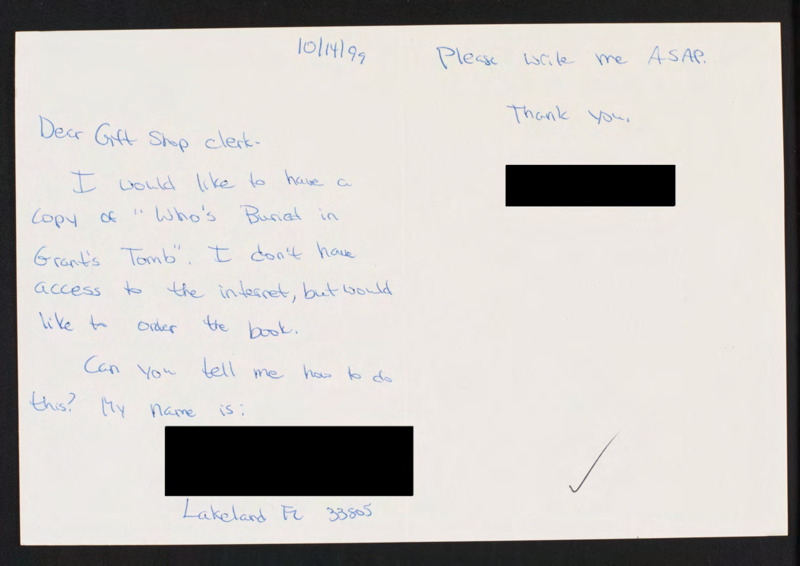 10/14/99
Dear Gift Shop clerk-
I would like to have a
copy of "Who's Buried in
Grant's Tomb". I don't have
access to the internet, but would
like to order the book.
Can you tell me how to do
this? My name is:
Lakeland FL 33805
Please write me ASAP.
Thank you.